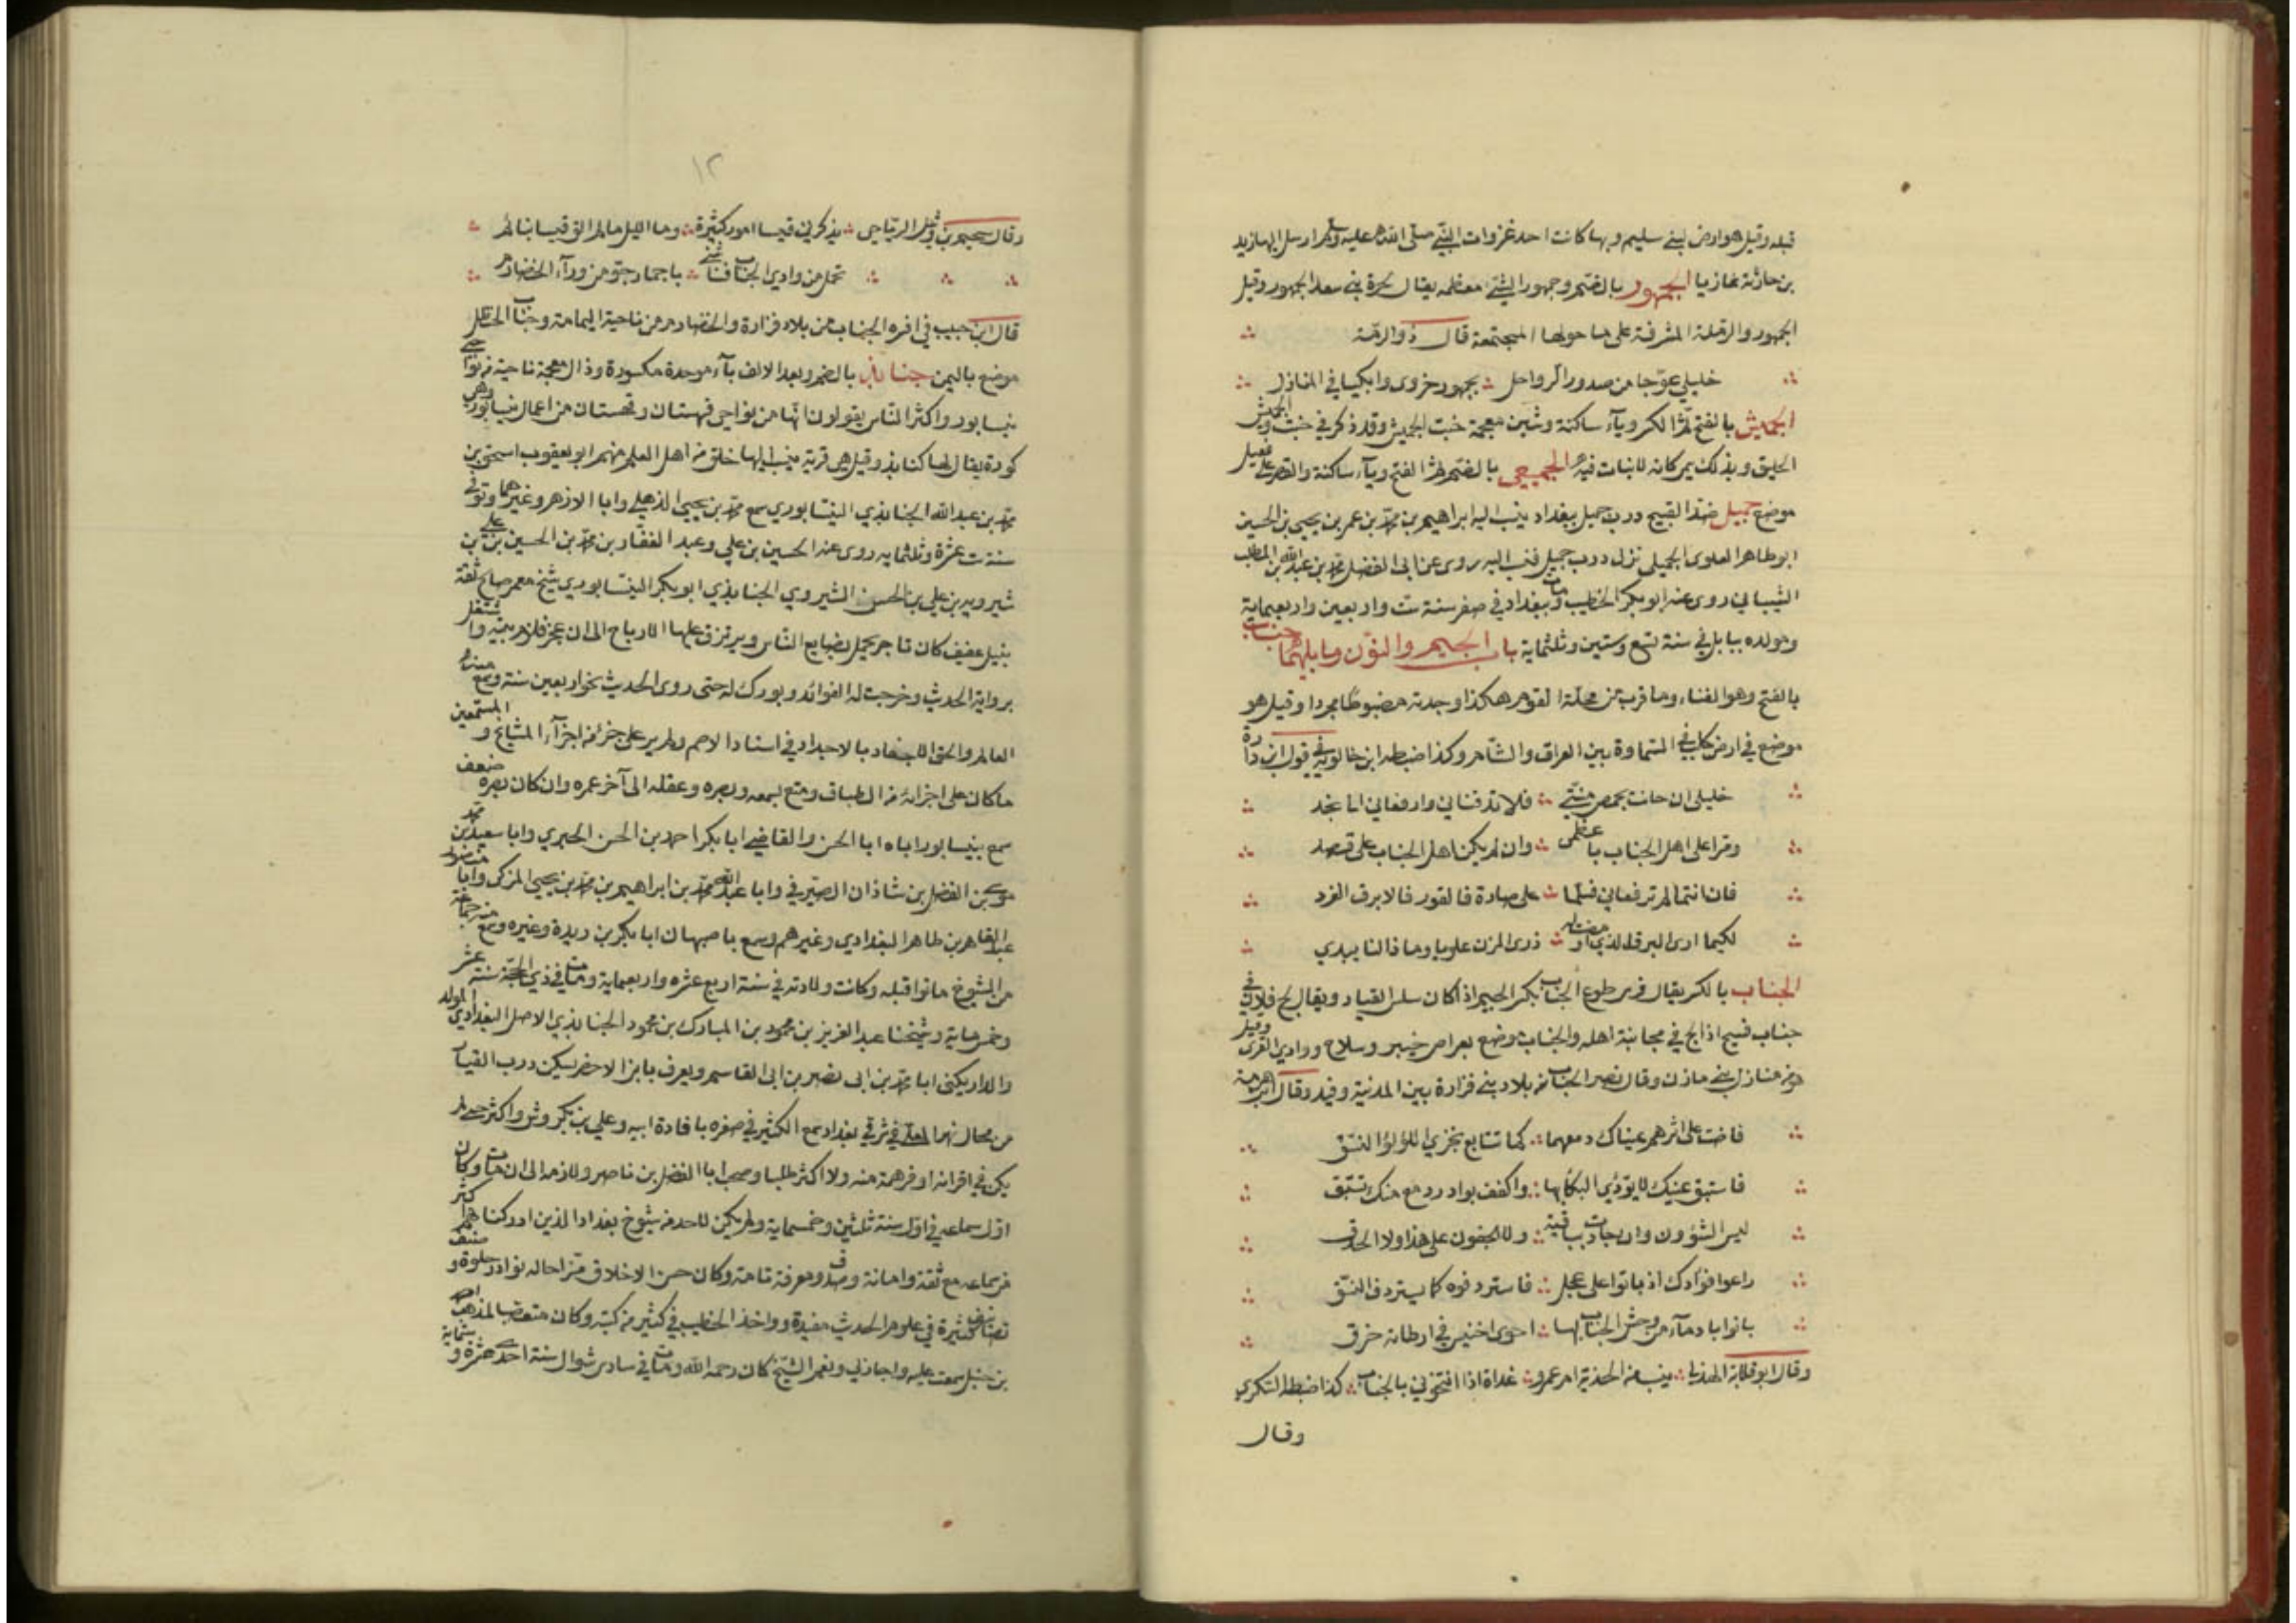 قبله وقيل هو ارض لبني سليم وبها كانت احد غزوات النبي صلى الله عليه وسلم ارسل اليها زيد
بن حارثة غازيا الجمهور بالضم وجمهور الشيء معظمه يقال لحرة بني سعد الجمهور وقيل
الجمهور والرملة المشرفة على ما حولها المجتمعة قال ذو الرمة
خليلي عوجا من صدور الرواحل بجمهور حزوى وابكيا في المنازل
الجميش بالفتح ثم الكسر وياء ساكنة وشين معجمة خبت الجميش وقد ذكر في خبت والجميش
الحليق وبذلك سمي كانه لا نبات فيه الجميعى بالضم ثم الفتح وياء ساكنة والقصر على فعيل
موضع جميل ضد القبيح درب جميل ببغداد ينسب اليه ابراهيم بن محمد بن عمر بن يحيى بن الحسين
ابو طاهر العلوى الجميلى نزل درب جميل فنسب اليه روى عن ابى الفضل محمد بن عبد الله بن المطلب
الشيباني روى عنه ابو بكر الخطيب ومات ببغداد في صفر سنة ست واربعين واربعماية
ومولده ببابل في سنة تسع وستين وثلثماية باب الجيم والنون وما يليهما جناب
بالفتح وهو الفناء وما قرب من محلة القوم هكذا وجدته مضبوطا مجردا وقيل هو
موضع في ارض كلب في السماوة بين العراق والشام وكذا ضبطه ابن خالويه في قول ابن دارة
خليلى ان حانت بحمص منيتي فلا تدفناني وارفعاني الى نجد
ومرا على اهل الجناب باعظمى وان لم يكن اهل الجناب على قصد
فان انتما لم ترفعاني فسلما على صارة فالقور فالابرق الفرد
لكيما ارى البرق الذي اومضت له ذرى المزن علويا وماذا لنا يبدي
الجناب بالكسر يقال فرس طوع الجناب بكسر الجيم اذا كان سلس القياد ويقال لج فلان في
جناب قبيح اذا لج في مجانبة اهله والجناب موضع بعراض خيبر وسلاح ووادي القرى وقيل
هو من منازل بني مازن وقال نصر الجناب من بلاد بني فزارة بين المدينة وفيد وقال ابن هرمة
فاضت على اثرهم عيناك دمعهما كما تتابع يجري اللؤلؤ النسق
فاستبق عينك لا يؤدي البكا بها واكفف بوادر دمع منك تستبق
ليس الشؤون وان جادت بباقية ولا الجفون على هذا ولا الحدق
راعوا فؤادك اذ بانوا على عجل فاستردفوه كما يستردف النسق
بانوا بادماء من وحش الجناب لها احوى اخينس في ارطاته خرق
وقال ابو قلابة الهذلي يئست من الحذية ام عمرو غداة اذا انتحوني بالجناب كذا ضبطه السكري
وقال
١٢
وقال سحيم بن وثيل الرياحي يذكرني قيسا امور كثيرة وما الليل ما لم الق قيسا بنائم
تحمل من وادي الجناب فناشني باجماد جو من وراء الخضارم
قال ابن حبيب في افره الجناب من بلاد فزارة والخضارم من ناحية اليمامة وجناب الحنظل
موضع باليمن جنابذ بالضم وبعد الالف باء موحدة مكسورة وذال معجمة ناحية من نواحي
نيسابور واكثر الناس يقولون انها من نواحي قهستان وقهستان من اعمال نيسابور وهي
كورة يقال لها كنابذ وقيل هي قرية ينسب اليها خلق من اهل العلم منهم ابو يعقوب اسحق بن
محمد بن عبد الله الجنابذي النيسابوري سمع محمد بن يحيى الذهلي وابا الازهر وغيرهما وتوفي
سنة ست عشرة وثلثمايه روى عنه الحسين بن علي وعبد الغفار بن محمد بن الحسين بن علي بن
شيرويه بن علي بن الحسن الشيروي الجنابذي ابو بكر النيسابوري شيخ معمر صالح ثقة
نبيل عفيف كان تاجر يحمل بضايع الناس ويرتزق عليها الارباح الى ان عجز فلزم بيته واشتغل
برواية الحديث وخرجت له الفوائد وبورك له حتى روى الحديث نحو اربعين سنة وسمع منه
العالم والحق الاحفاد بالاجداد في اسناد الاصم ولم ير على جزائه اجزاء المشايخ والمستمعين
ما كان على اجزائه من الطباق ومتع بسمعه وبصره وعقله الى آخر عمره وان كان بصره ضعف
سمع بنيسابور اباه ابا الحسن والقاضي ابا بكر احمد بن الحسن الحيري وابا سعيد محمد بن
موسى بن الفضل بن شاذان الصيرفي وابا عبد الله محمد بن ابراهيم بن محمد بن يحيى المزكى وابا منصور
عبد القاهر بن طاهر البغدادي وغيرهم وسمع باصبهان ابا بكر بن ريدة وغيره وسمع منه جماعة
من الشيوخ ماتوا قبله وكانت ولادته في سنة اربع عشره واربعماية ومات في ذي الحجة سنة عشر
وخمس ماية وشيخنا عبد العزيز بن محمود بن المبارك بن محمود الجنابذي الاصل البغدادي المولد
والدار يكنى ابا محمد بن ابى نصر بن ابى القاسم ويعرف بابن الاخضر يسكن درب القيار
من محال نهر المعلى في شرقي بغداد سمع الكثير في صغره بافادة ابيه وعلي بن بكروش واكثر حتى لم
يكن في اقرانه اوفر همة منه ولا اكثر طلبا وصحب ابا الفضل بن ناصر ولازمه الى ان مات وكان
اول سماعه في اول سنة ثلثين وخمسماية ولم يكن لاحد من شيوخ بغداد الذين ادركناهم اكثر
من سماعه مع ثقة وامانة وصدق ومعرفة تامة وكان حسن الاخلاق مزاحا له نوادر حلوة وصنف
تصانيف كثيرة في علوم الحديث مفيدة وواخذ الخطيب في كثير من كتبه وكان متعصبا لمذهب احمد
بن حنبل سمعت عليه واجازلي ونعم الشيخ كان رحمه الله ومات في سادس شوال سنة احدى عشرة وستماية